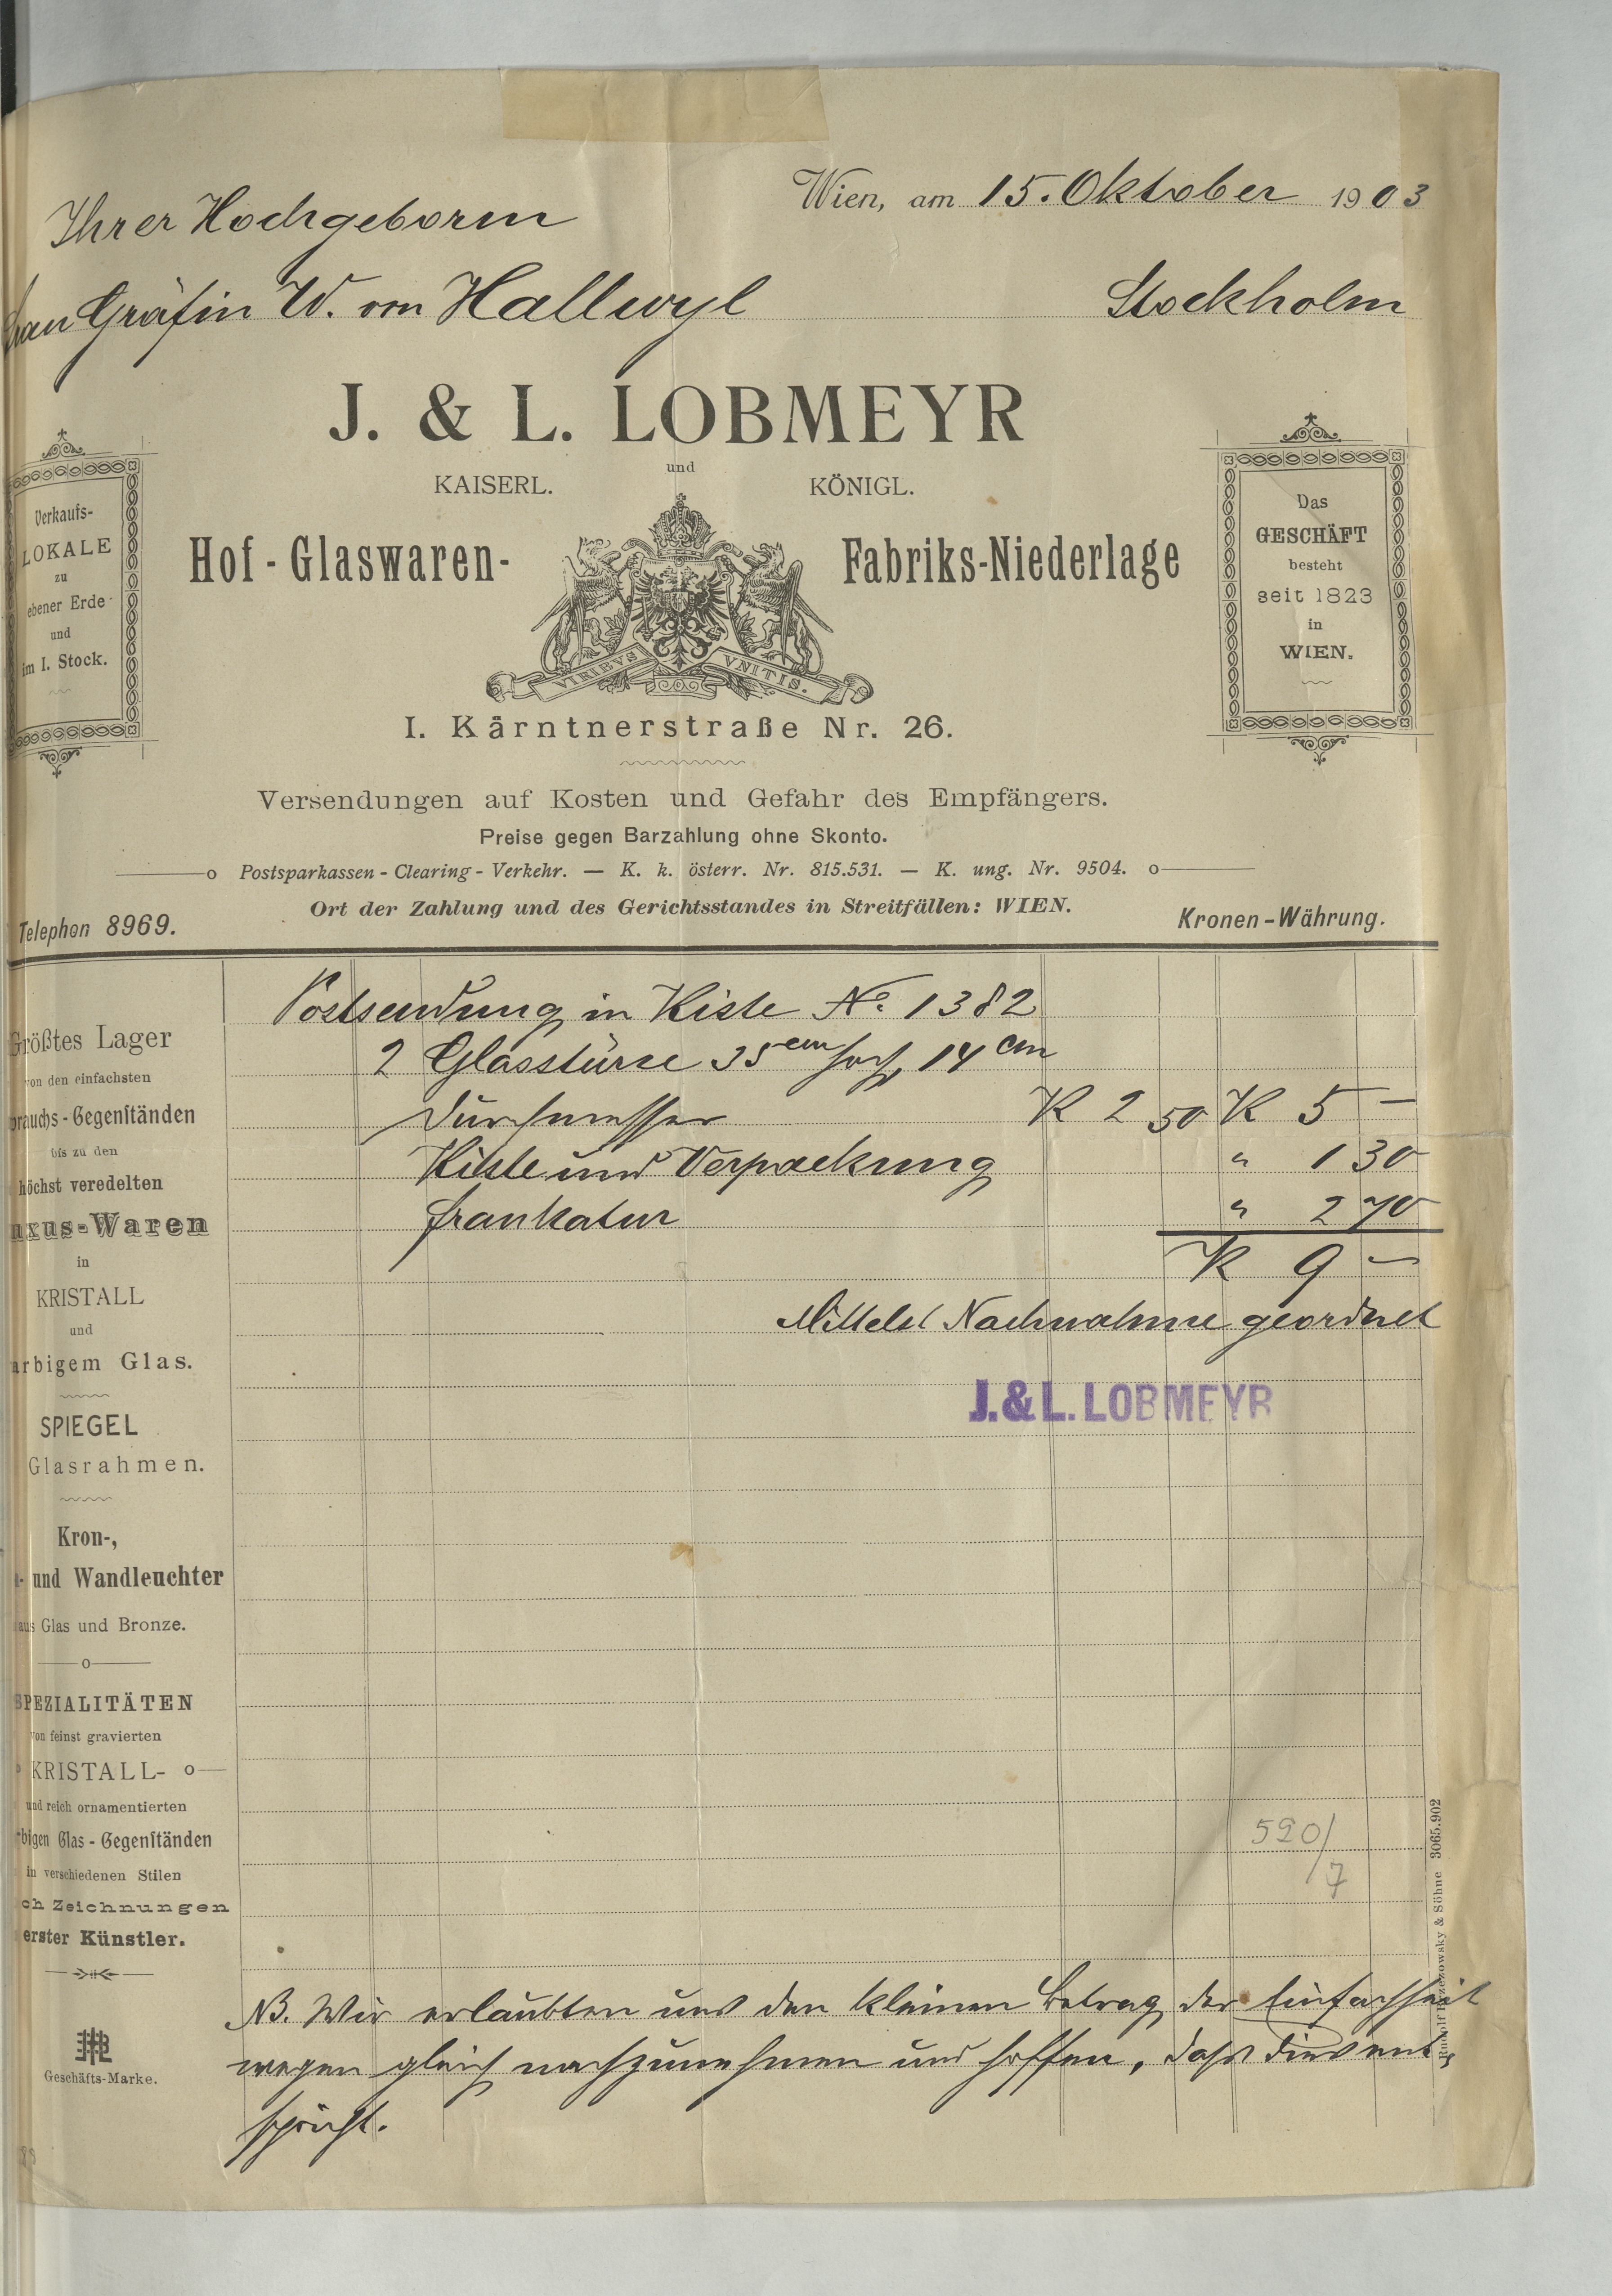 Wien, am 15. Oktober 1903
Ihrer Hochgeboren
Frau Gräfin W. von Hallwyl Stockholm
J. & L. LOBMEYR
KAISERL. und KÖNIGL.
Hof-Glaswaren- Fabriks-Niederlage
VIRIBVS VNITIS.
I. Kärntnerstraße Nr. 26.
Verkaufs-
LOKALE
zu
ebener Erde
und
im I. Stock.
Das
GESCHÄFT
besteht
seit 1823
in
WIEN.
Versendungen auf Kosten und Gefahr des Empfängers.
Preise gegen Barzahlung ohne Skonto.
Postsparkassen-Clearing-Verkehr. — K. k. österr. Nr. 815.531. — K. ung. Nr. 9504.
Ort der Zahlung und des Gerichtsstandes in Streitfällen: WIEN.
Telephon 8969.
Kronen-Währung.
Postsendung in Kiste No. 1382
2 Glasstürze 35 cm hoch, 14 cm
Durchmesser K 2 50 K 5 —
Kiste und Verpackung " 1 30
Frankatur " 2 70
K 9 —
Mittelst Nachnahme geordnet
J. & L. LOBMEYR
Größtes Lager
von den einfachsten
brauchs-Gegenständen
bis zu den
höchst veredelten
uxus-Waren
in
KRISTALL
und
arbigem Glas.
SPIEGEL
Glasrahmen.
Kron-,
- und Wandleuchter
aus Glas und Bronze.
SPEZIALITÄTEN
von feinst gravierten
KRISTALL-
und reich ornamentierten
rbigen Glas-Gegenständen
in verschiedenen Stilen
ch Zeichnungen
erster Künstler.
Geschäfts-Marke.
520/7
NB. Wir erlaubten uns den kleinen Betrag der Einfachheit
wegen gleich nachzunehmen und hoffen, dass dies ent-
spricht.
& Söhne 3065.902